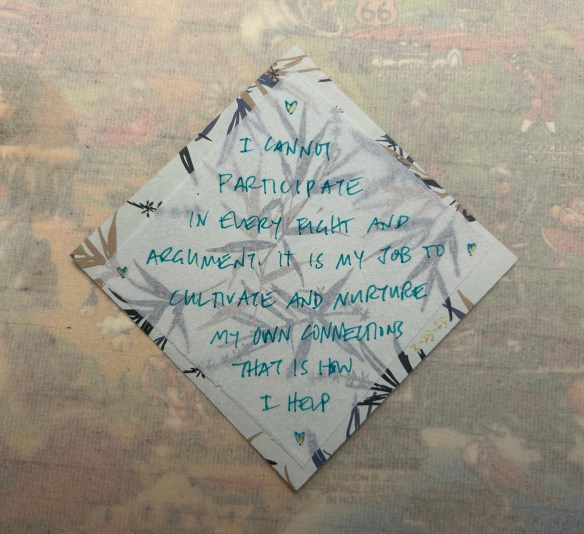 66
I CANNOT
PARTICIPATE
IN EVERY FIGHT AND
ARGUMENT. IT IS MY JOB TO
CULTIVATE AND NURTURE
MY OWN CONNECTIONS
THAT IS HOW
I HELP